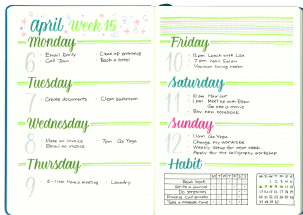 April, Week 15
Monday
6
Email Emily
Clean up entrance
Call Tom
Book a hotel
Tuesday
7
Create documents
Clean bathroom
Wednesday
8
Make an invoice
7pm Go Yoga
Email an invoice
Thursday
9
Laundry
Friday
10
12pm Lunch with Lisa
7pm
Vacuum living room
Saturday
11
10am Hair cut
1pm Meet up with Ellen
Go see a movie
Buy new notebook
Sunday
12
11am Go Yoga
Change my wardrobe
Weekly Setup for next week
Apply for the calligraphy workshop
Habit
M T W T F S S
Read book
Write a journal
Do stretches
Practice calligraphy
Take a medicine